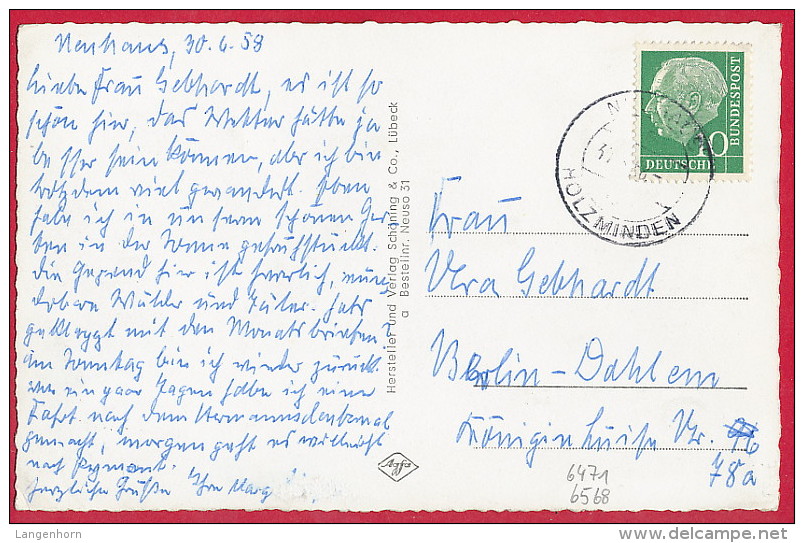 Neuhaus, 30.6.58
Liebe Frau Gebhardt, es ist so
schön hier, das Wetter hätte ja
besser sein können, aber ich bin
trotzdem viel gewandert. Eben
habe ich in unserm schönen Gar
ten in der Sonne gefrühstückt.
Die Gegend hier ist herrlich, wun
derbare Wälder und Täler. Hats
geklappt mit den Monatsbriefen?
Am Sonntag bin ich wieder zurück.
Vor ein paar Tagen habe ich eine
Fahrt nach dem Hermannsdenkmal
gemacht, morgen geht es vielleicht
nach Pyrmont.
Herzliche Grüße Ihre
Hersteller und Verlag Schöning & Co., Lübeck
a Bestellnr. Neuso 31
Agfa
DEUTSCHE BUNDESPOST
HOLZMINDEN
Frau
Vera Gebhardt
Berlin-Dahlem
Königin Luise Str.
78a
6471
6568
Langenhorn
www.delcampe.net